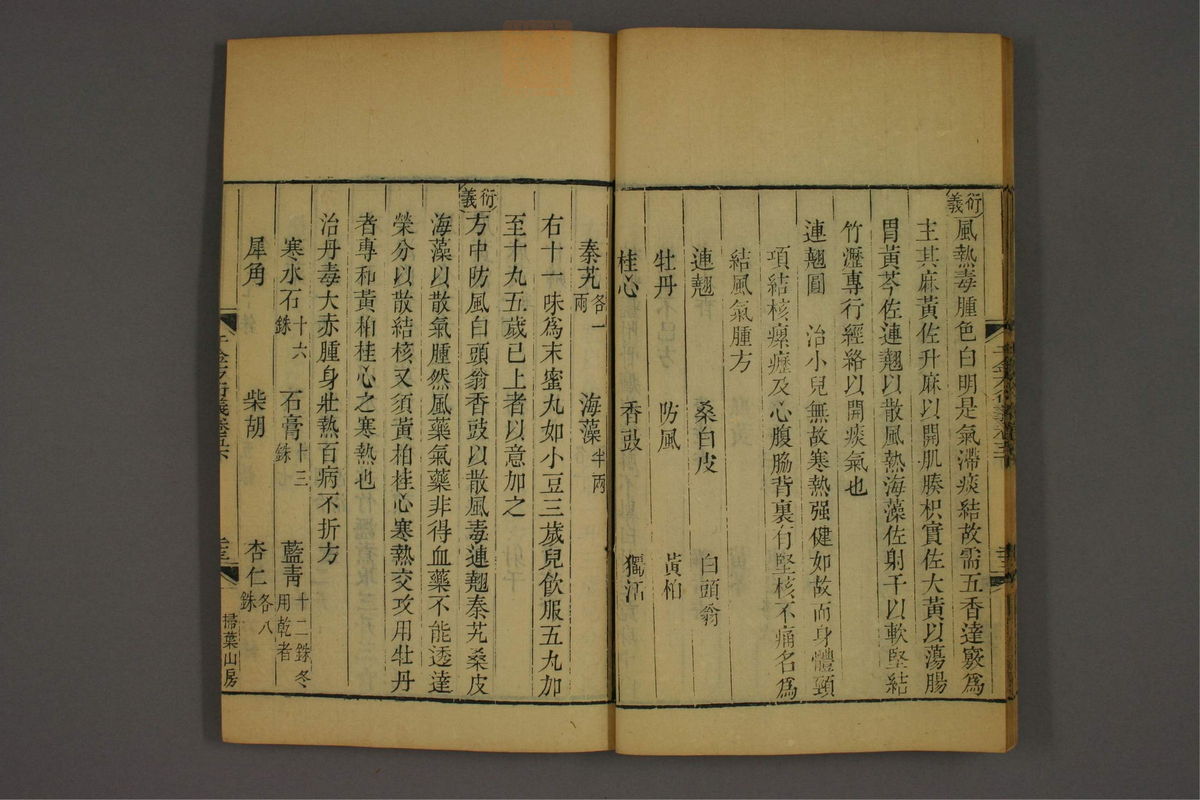 衍義風熱毒腫色白明是氣滯痰結故需五香達竅爲
主其麻黃佐升麻以開肌腠枳實佐大黃以蕩腸
胃黃芩佐連翹以散風熱海藻佐射干以軟堅結
竹瀝專行經絡以開痰氣也
連翹圓 治小兒無故寒熱强健如故而身體頸
項結核瘰癧及心腹脇背裏有堅核不痛名爲
結風氣腫方
連翹 桑白皮 白頭翁
牡丹 防風 黃柏
桂心 香豉 獨活
秦艽各一兩 海藻半兩
右十一味爲末蜜丸如小豆三歲兒飲服五丸加
至十丸五歲已上者以意加之
衍義方中防風白頭翁香豉以散風毒連翹秦艽桑皮
海藻以散氣腫然風藥氣藥非得血藥不能透達
榮分以散結核又須黃柏桂心寒熱交攻用牡丹
者專和黃柏桂心之寒熱也
治丹毒大赤腫身壯熱百病不折方
寒水石十六銖 石膏十三銖 藍靑十二銖冬用乾者
犀角 柴胡 杏仁各八銖
千金方衍義卷五 掃葉山房